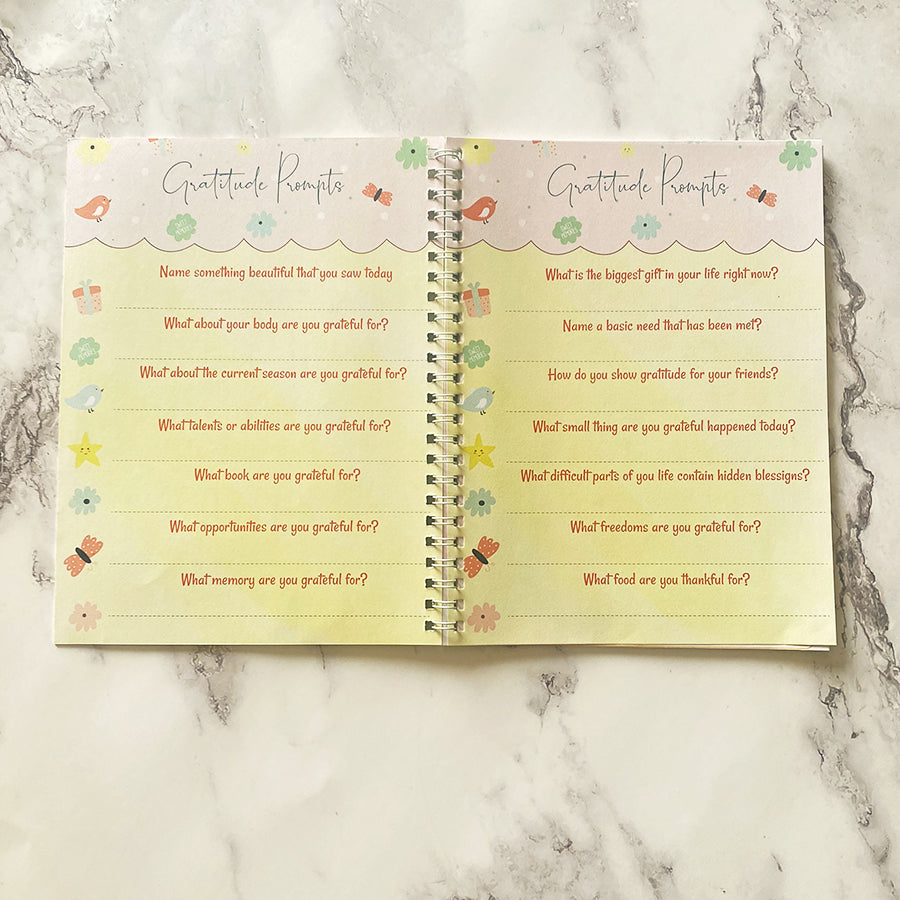 Gratitude Prompts
SWEET MEMORIES
Name something beautiful that you saw today
What about your body are you grateful for?
SWEET MEMORIES
What about the current season are you grateful for?
What talents or abilities are you grateful for?
What book are you grateful for?
What opportunities are you grateful for?
What memory are you grateful for?
Gratitude Prompts
SWEET MEMORIES
What is the biggest gift in your life right now?
Name a basic need that has been met?
SWEET MEMORIES
How do you show gratitude for your friends?
What small thing are you grateful happened today?
What difficult parts of you life contain hidden blessigns?
What freedoms are you grateful for?
What food are you thankful for?